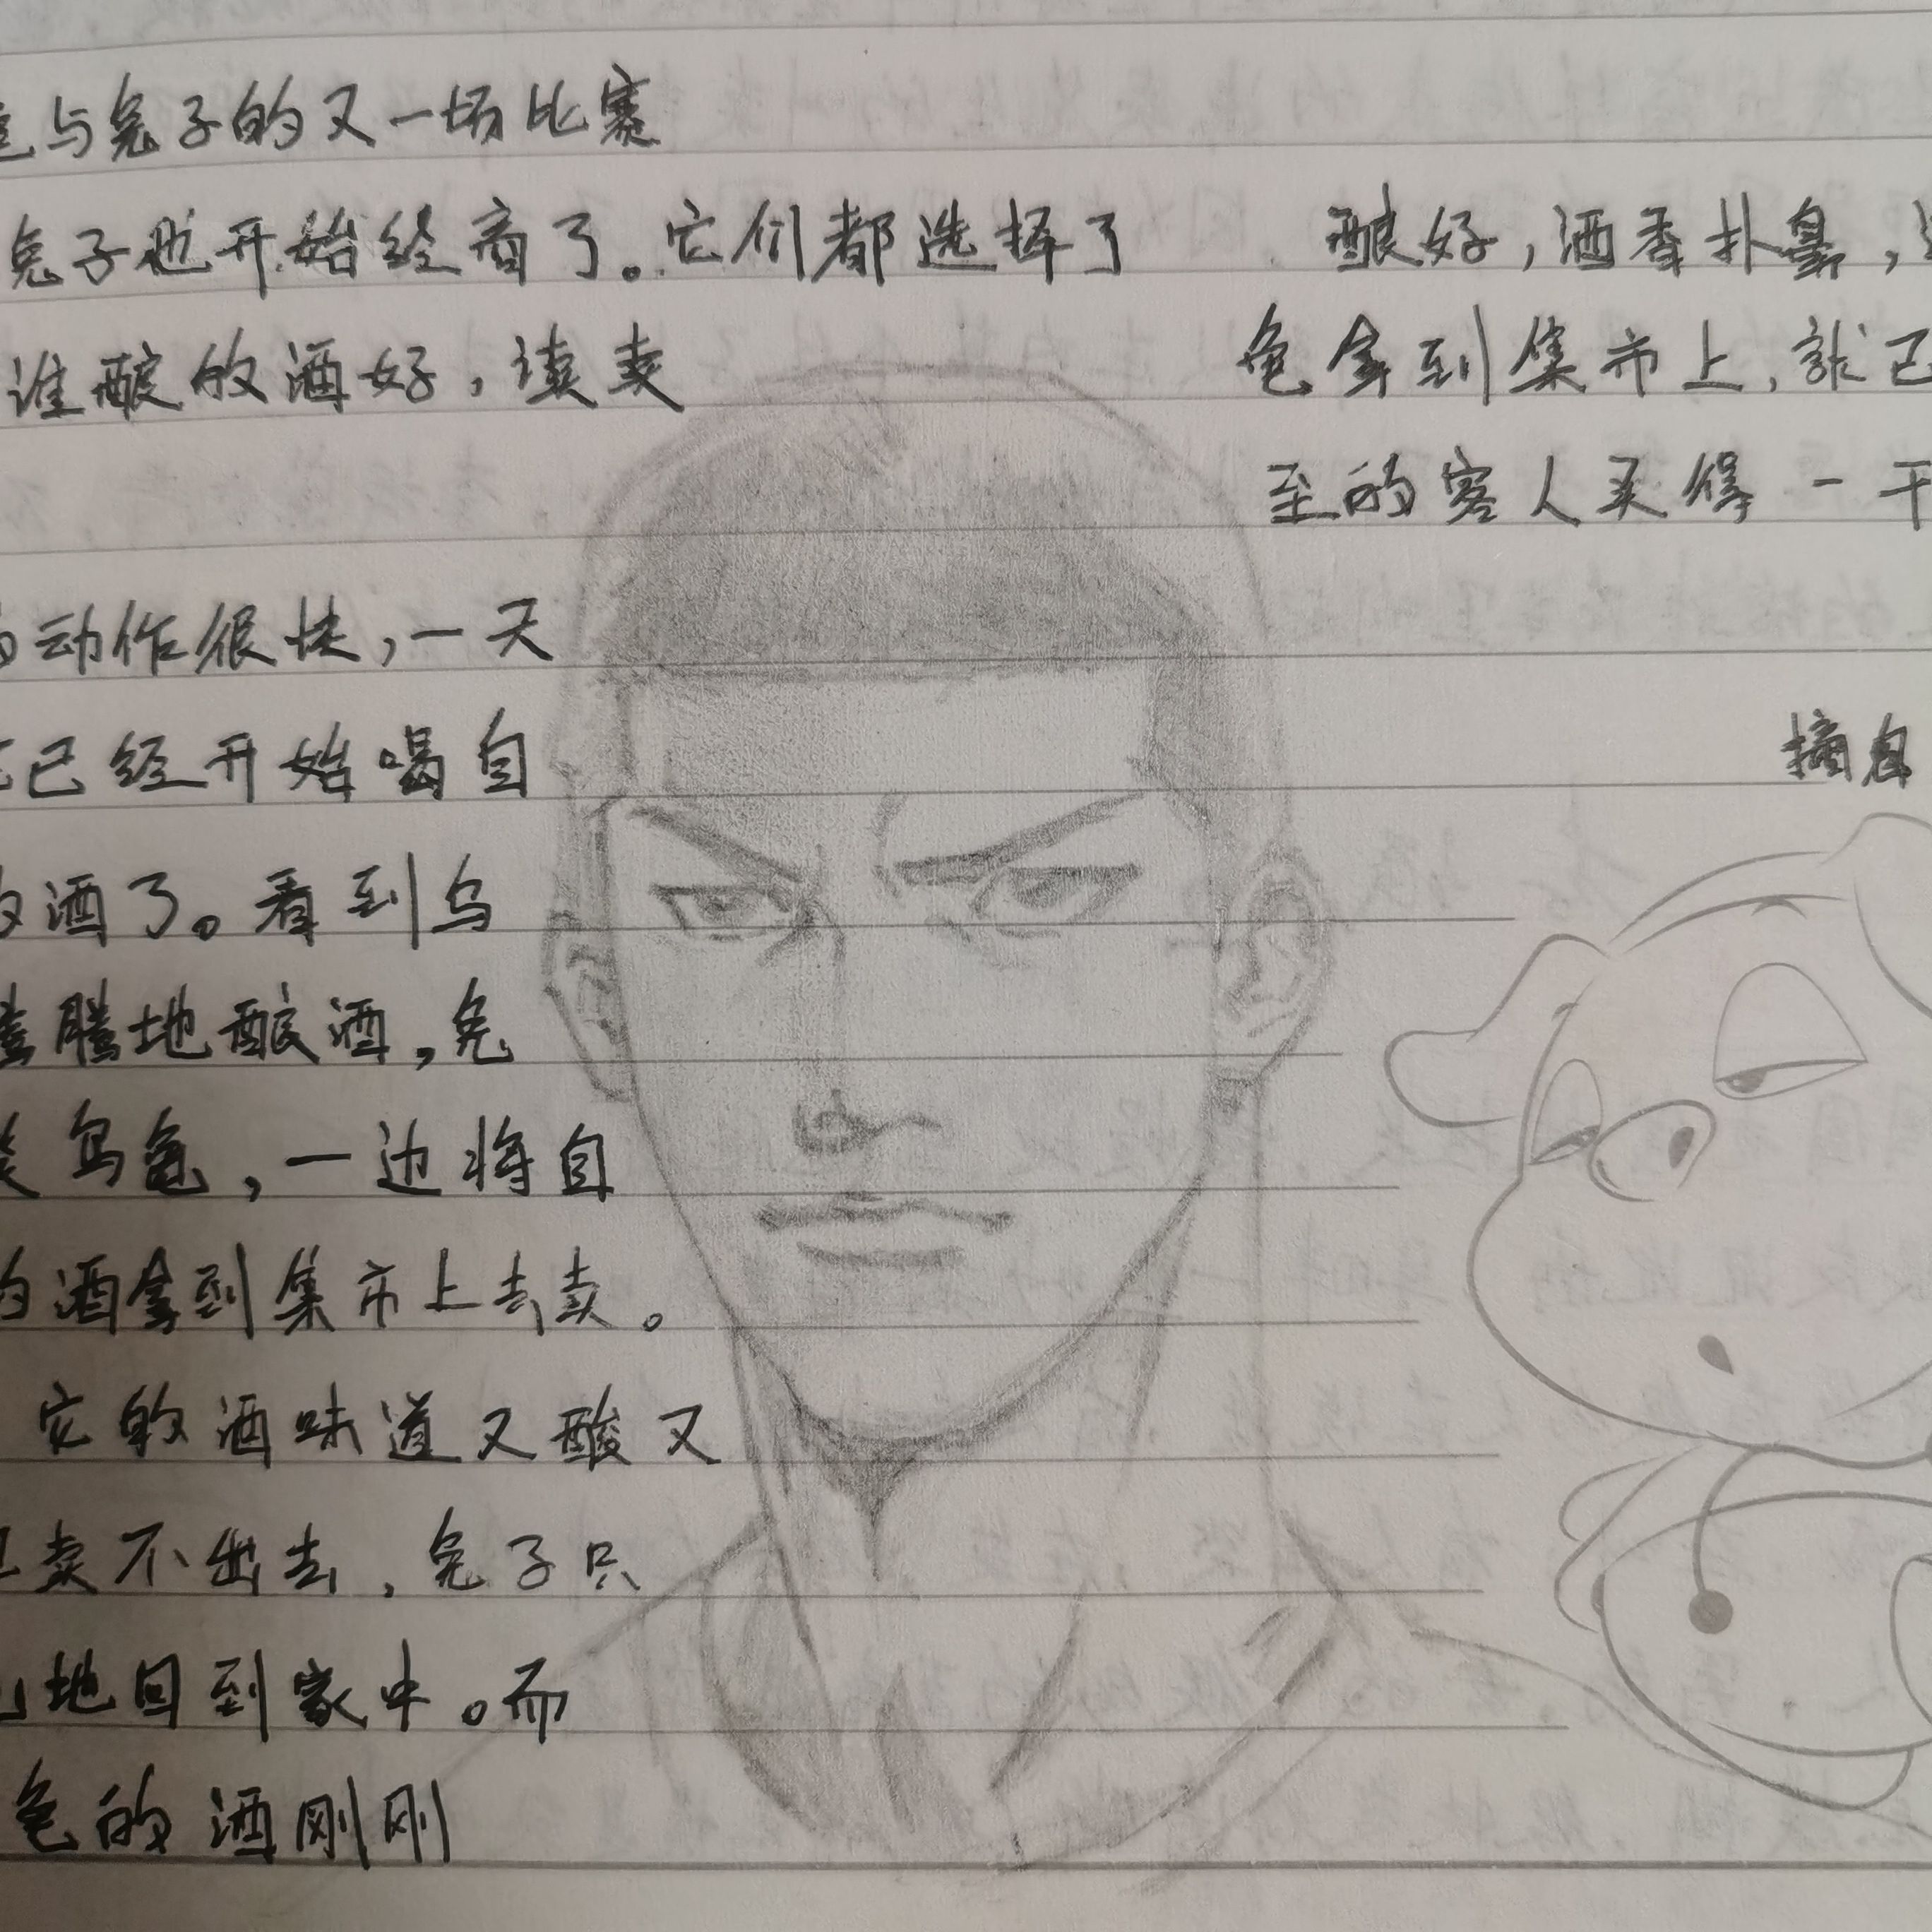 与兔子的又一场比赛
兔子也开始经商了。它们都选择了
谁酿的酒好，谁卖
动作很快，一天
已经开始喝自
的酒了。看到乌
腾腾地酿酒，兔
笑乌龟，一边将自
的酒拿到集市上去卖。
它的酒味道又酸又
卖不出去，兔子只
地回到家中。而
龟的酒刚刚
酿好，酒香扑鼻，
龟拿到集市上，就已
至的客人买得一干
摘自